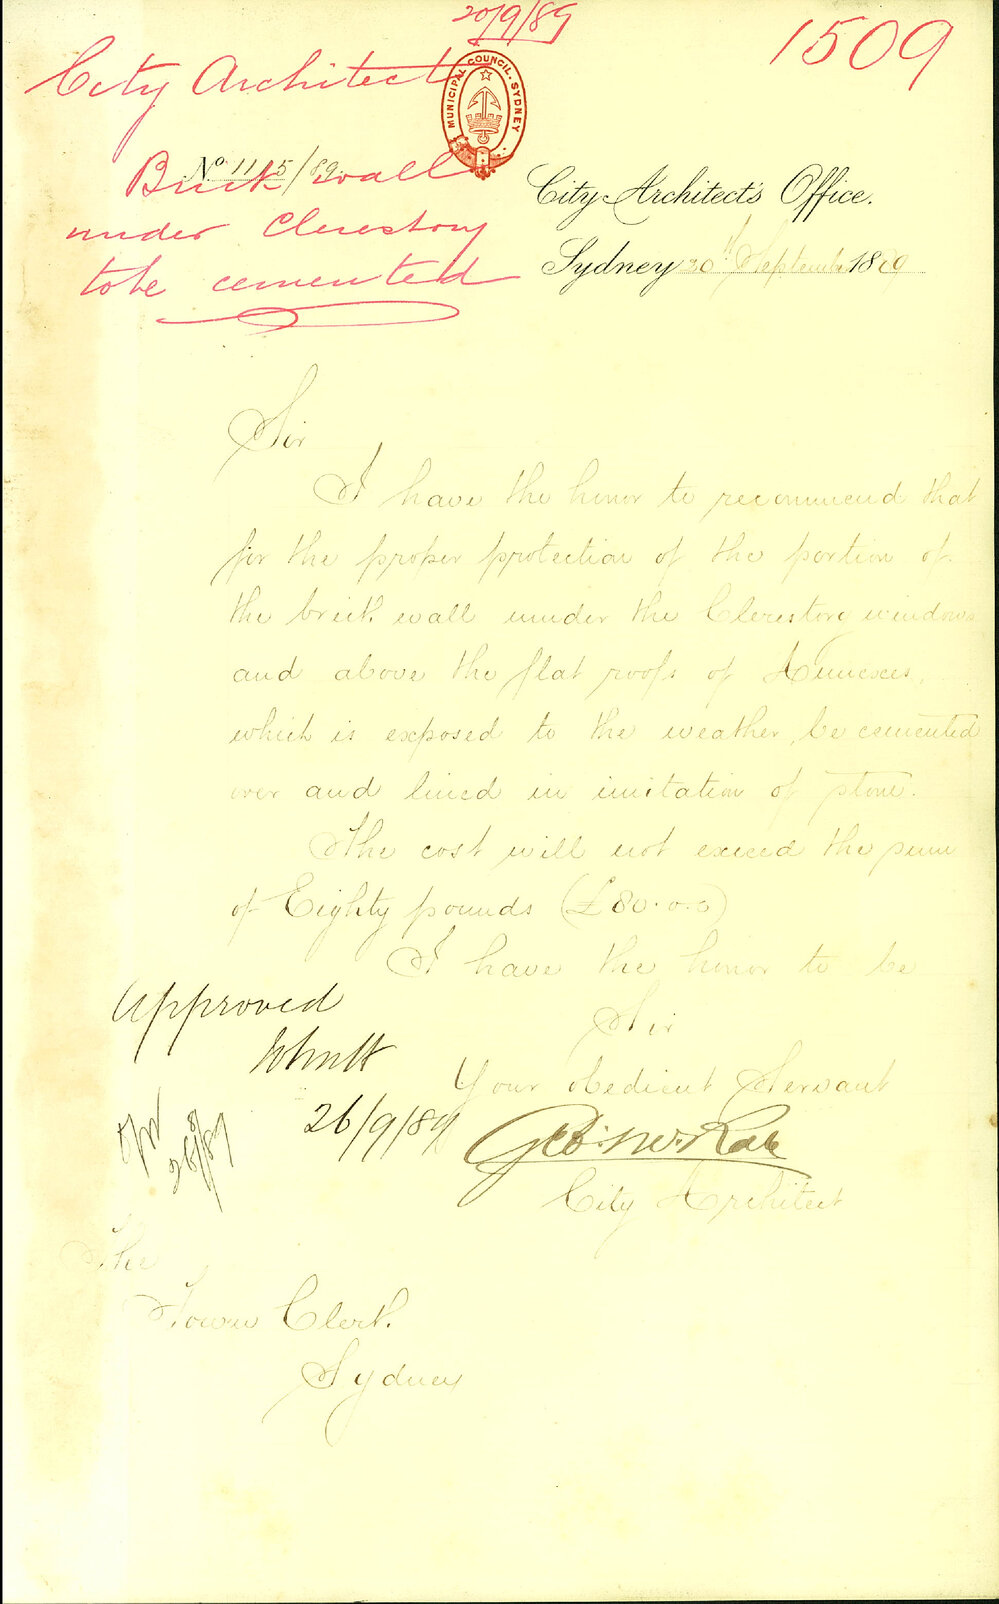 20/9/89
1509
City Architect
MUNICIPAL COUNCIL. SYDNEY
No. 1115/89
Brick wall
under Clerestory
to be cemented
City Architect's Office.
Sydney 20th September 1889
Sir
I have the honor to recommend that
for the proper protection of the portion of
the brick wall under the Clerestory windows
and above the flat roofs of Annexes,
which is exposed to the weather, be cemented
over and lined in imitation of stone.
The cost will not exceed the sum
of Eighty pounds (£80.0.0)
I have the honor to be
Sir
Your obedient Servant
City Architect
Approved
26/9/89
The
Town Clerk.
Sydney